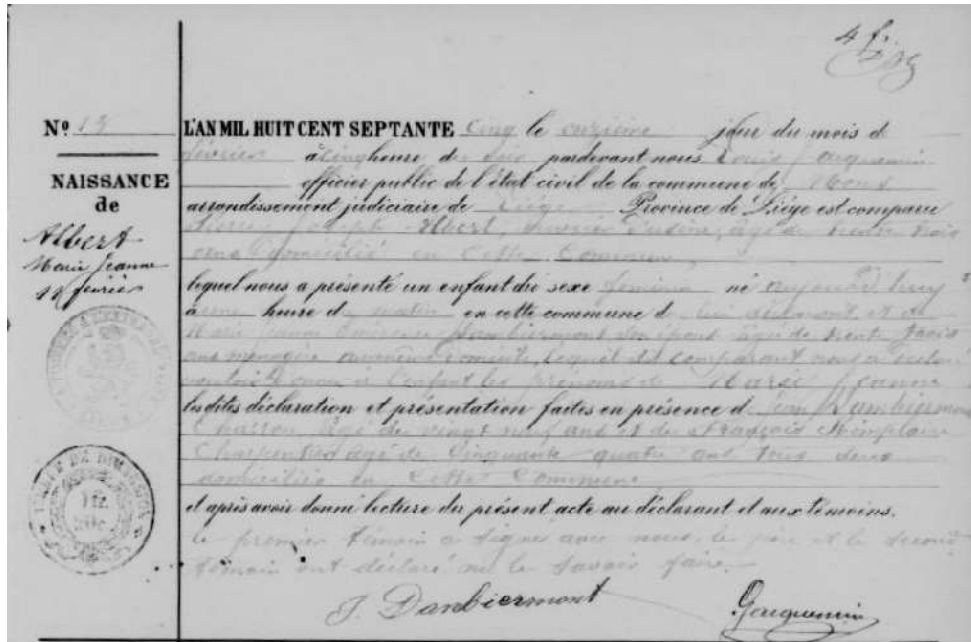 4 fr.
Nº 13
NAISSANCE
de
Albert
Marie Jeanne
11 février
L'AN MIL HUIT CENT SEPTANTE Cinq le onzième jour du mois de
février à cinq heure du soir pardevant nous Louis Jacquemin
officier public de l'état civil de la commune de Mons
arrondissement judiciaire de Liége Province de Liége est comparu
Joseph Albert, ouvrier d'usine, âgé de trente trois
ans domicilié en Cette Commune,
lequel nous a présenté un enfant du sexe feminin né aujourd'huy
à une heure du matin en cette commune de lui déclarant et de
Marie Jeanne Dambiermont son épouse âgée de trente trois
ans ménagère au même domicile, lequel dit comparant nous a déclaré
vouloir donner à l'enfant les prenoms de Marie Jeanne
les dites déclaration et présentation faites en présence de Jean Dambiermont
Charron âgé de vingt neuf ans et de François
Charpentier âgé de Cinquante quatre ans tous deux
domiciliés en Cette Commune
et après avoir donné lecture du présent acte au déclarant et aux témoins.
le premier témoin a signé avec nous, le père et le second
témoin ont déclaré ne le savoir faire.
J. Dambiermont Jacquemin